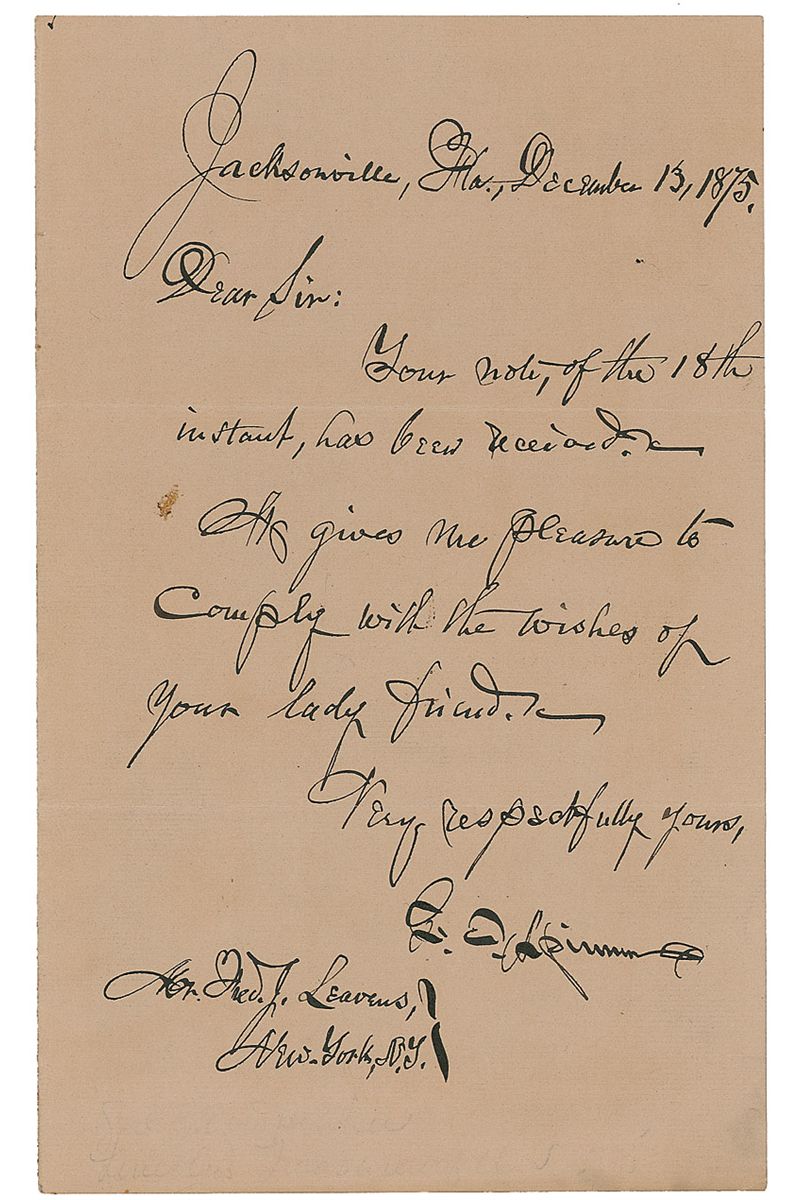 Jacksonville, Fla., December 13, 1875.
Dear Sir:
Your note, of the 18th
instant, has been received.
It gives me pleasure to
comply with the wishes of
your lady friend.
Very respectfully yours,
F. E. Spinner
Mr. Fred. J. Leavens,
New-York, N.Y.